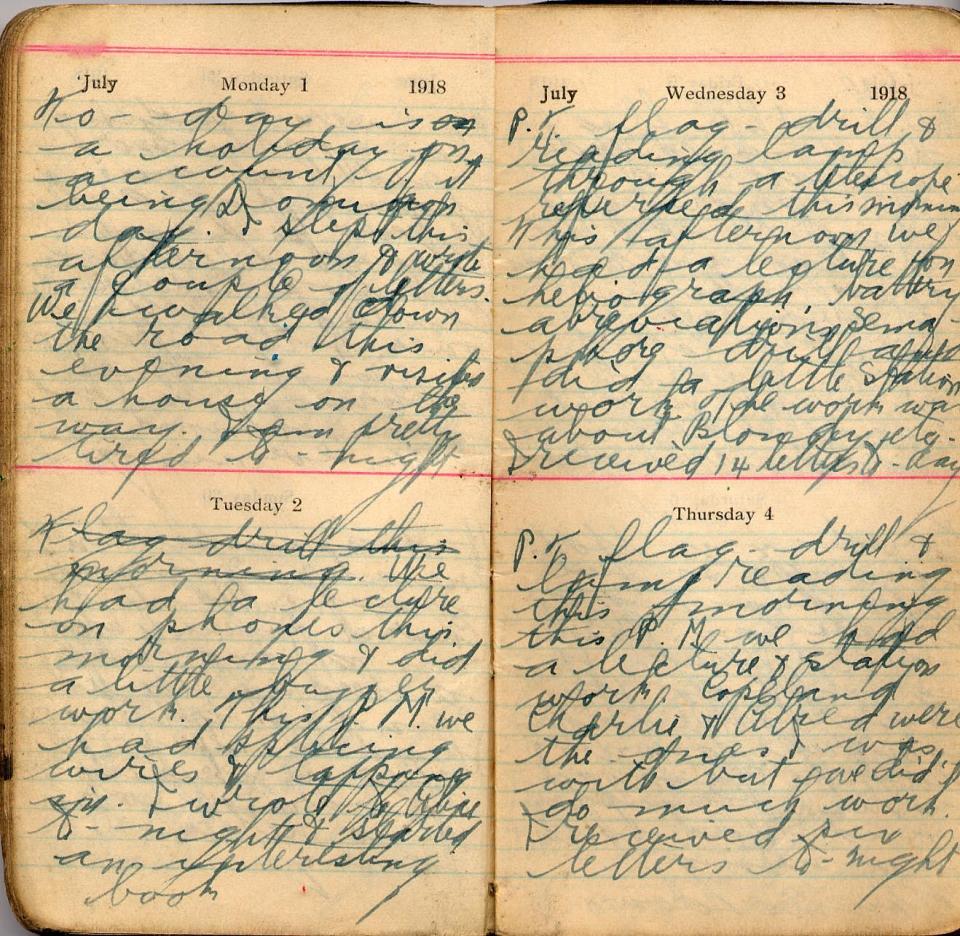 July Monday 1 1918
To-day is
a holiday on
account of it
being Dominion
day. I slept this
afternoon & wrote
a couple of letters.
We walked down
the road this
evening & visited
a house on the
way. I am pretty
tired to-night
Tuesday 2
Flag drill this
morning. We
had a lecture
on phones this
morning & did
a little buzzer
work. This P.M. we
had splicing
wires & tapping
in. I wrote to
to-night & started
an interesting
book
July Wednesday 3 1918
P.T. flag-drill &
reading lamp
through a telescope
reversed this morning
This afternoon we
had a lecture on
heliograph, battery
abreviations, Sema-
phore drill and
did a little Station
work. The work was
about etc.
I received 14 letters to-day
Thursday 4
P.T. flag-drill &
lamp reading
this morning
this P.M. we had
a lecture & station
work. Copeland
Charlie & Alfred were
the ones I was
with but we did't
do much work.
I received six
letters to-night